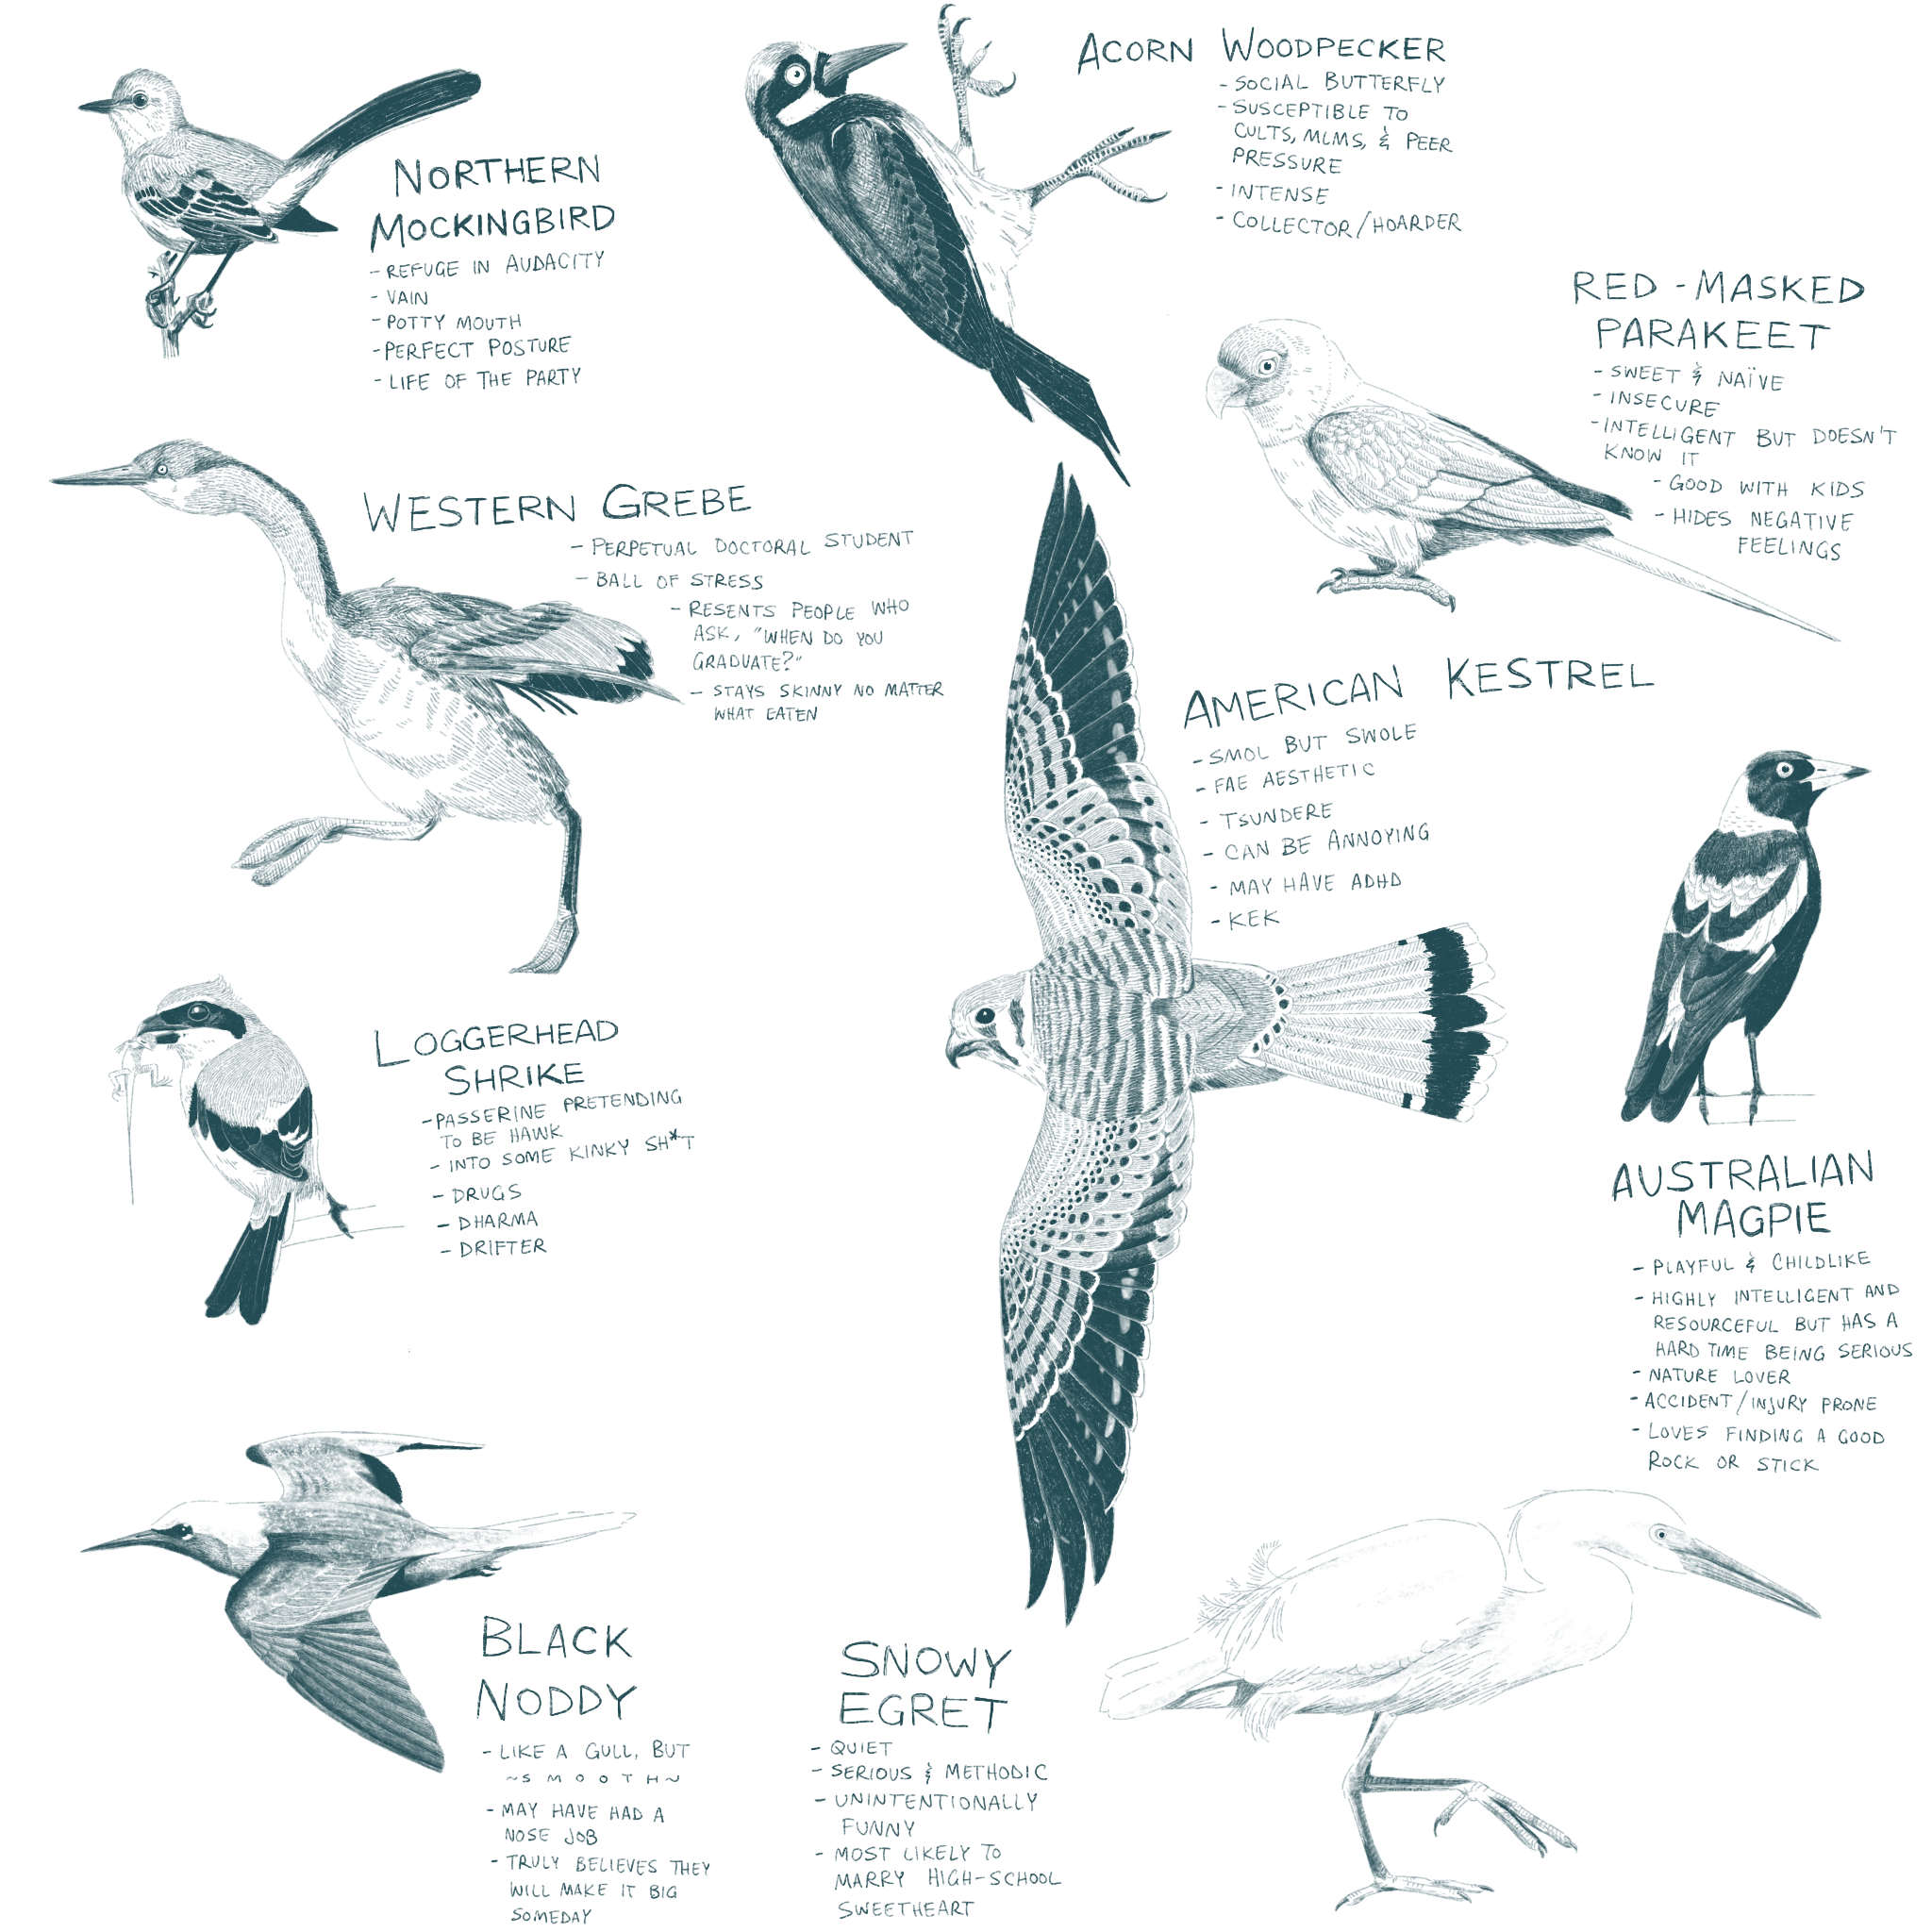 NORTHERN
MOCKINGBIRD
- REFUGE IN AUDACITY
- VAIN
- POTTY MOUTH
- PERFECT POSTURE
- LIFE OF THE PARTY
ACORN WOODPECKER
- SOCIAL BUTTERFLY
- SUSCEPTIBLE TO
CULTS, MLMS, & PEER
PRESSURE
- INTENSE
- COLLECTOR/HOARDER
RED-MASKED
PARAKEET
- SWEET & NAÏVE
- INSECURE
- INTELLIGENT BUT DOESN'T
KNOW IT
- GOOD WITH KIDS
- HIDES NEGATIVE
FEELINGS
WESTERN GREBE
- PERPETUAL DOCTORAL STUDENT
- BALL OF STRESS
- RESENTS PEOPLE WHO
ASK, "WHEN DO YOU
GRADUATE?"
- STAYS SKINNY NO MATTER
WHAT EATEN
AMERICAN KESTREL
- SMOL BUT SWOLE
- FAE AESTHETIC
- TSUNDERE
- CAN BE ANNOYING
- MAY HAVE ADHD
- KEK
LOGGERHEAD
SHRIKE
- PASSERINE PRETENDING
TO BE HAWK
- INTO SOME KINKY SH*T
- DRUGS
- DHARMA
- DRIFTER
AUSTRALIAN
MAGPIE
- PLAYFUL & CHILDLIKE
- HIGHLY INTELLIGENT AND
RESOURCEFUL BUT HAS A
HARD TIME BEING SERIOUS
- NATURE LOVER
- ACCIDENT/INJURY PRONE
- LOVES FINDING A GOOD
ROCK OR STICK
BLACK
NODDY
- LIKE A GULL, BUT
~SMOOTH~
- MAY HAVE HAD A
NOSE JOB
- TRULY BELIEVES THEY
WILL MAKE IT BIG
SOMEDAY
SNOWY
EGRET
- QUIET
- SERIOUS & METHODIC
- UNINTENTIONALLY
FUNNY
- MOST LIKELY TO
MARRY HIGH-SCHOOL
SWEETHEART